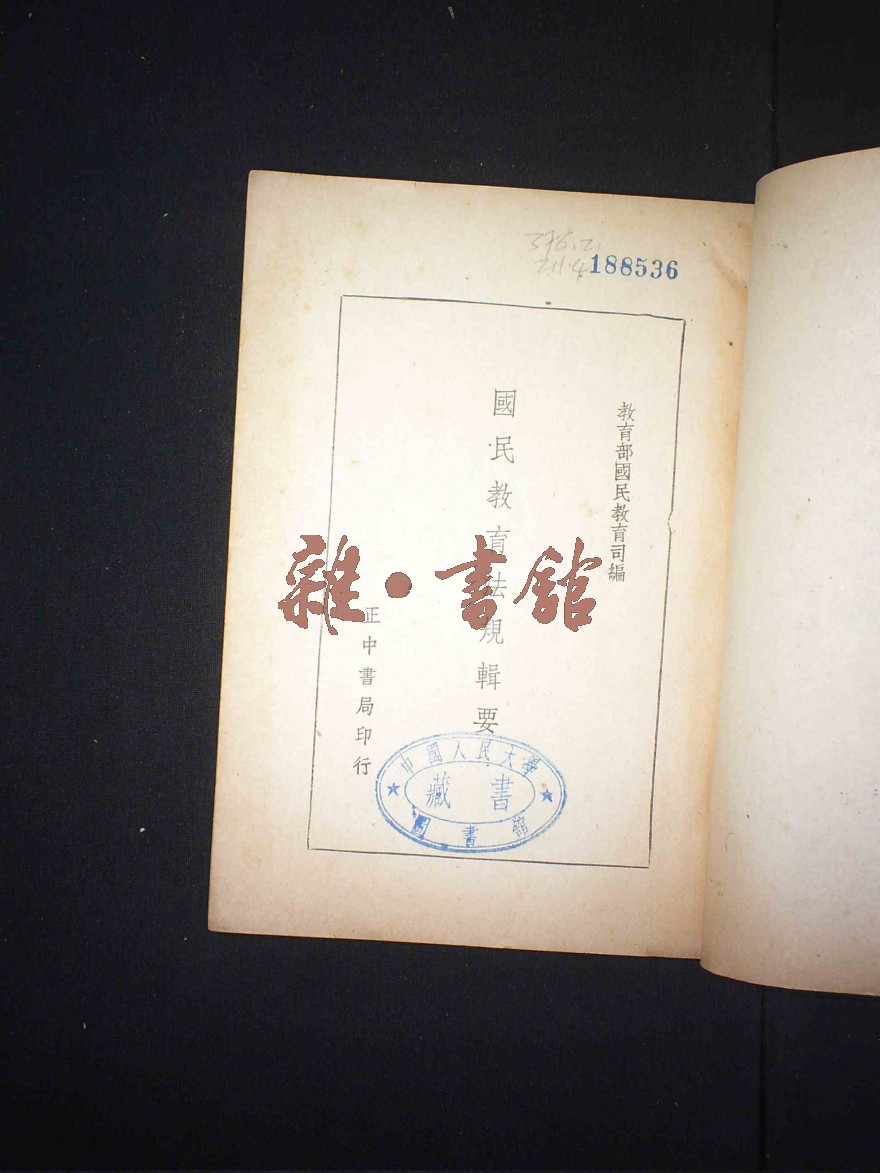 188536
教育部國民教育司編
國民教育法規輯要
正中書局印行
中國人民大學
藏書
圖書館
雜·書館